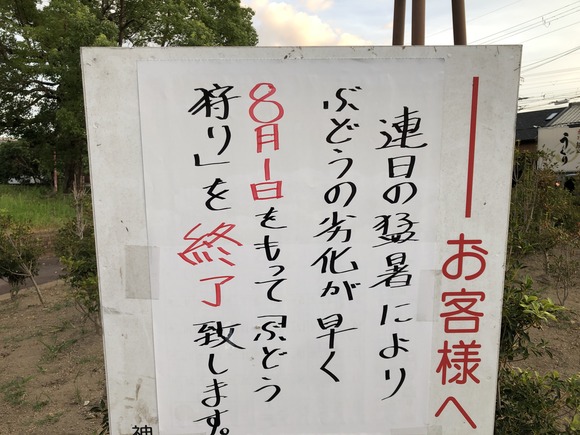 お客様へ
連日の猛暑により
ぶどうの劣化が早く
8月1日をもってぶどう
狩り」を終了致します。
神